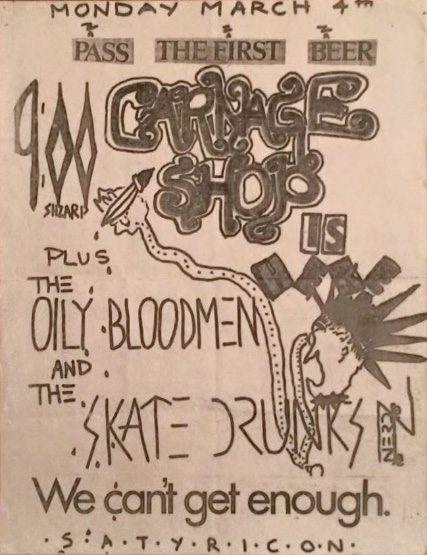 MONDAY MARCH 4th
PASS THE FIRST BEER
9:00
SHARP
CARNAGE
SHOJO
IS
HERE
PLUS
THE
OILY BLOODMEN
AND
THE
SKATE DRUNKS
We can't get enough.
S·A·T·Y·R·I·C·O·N